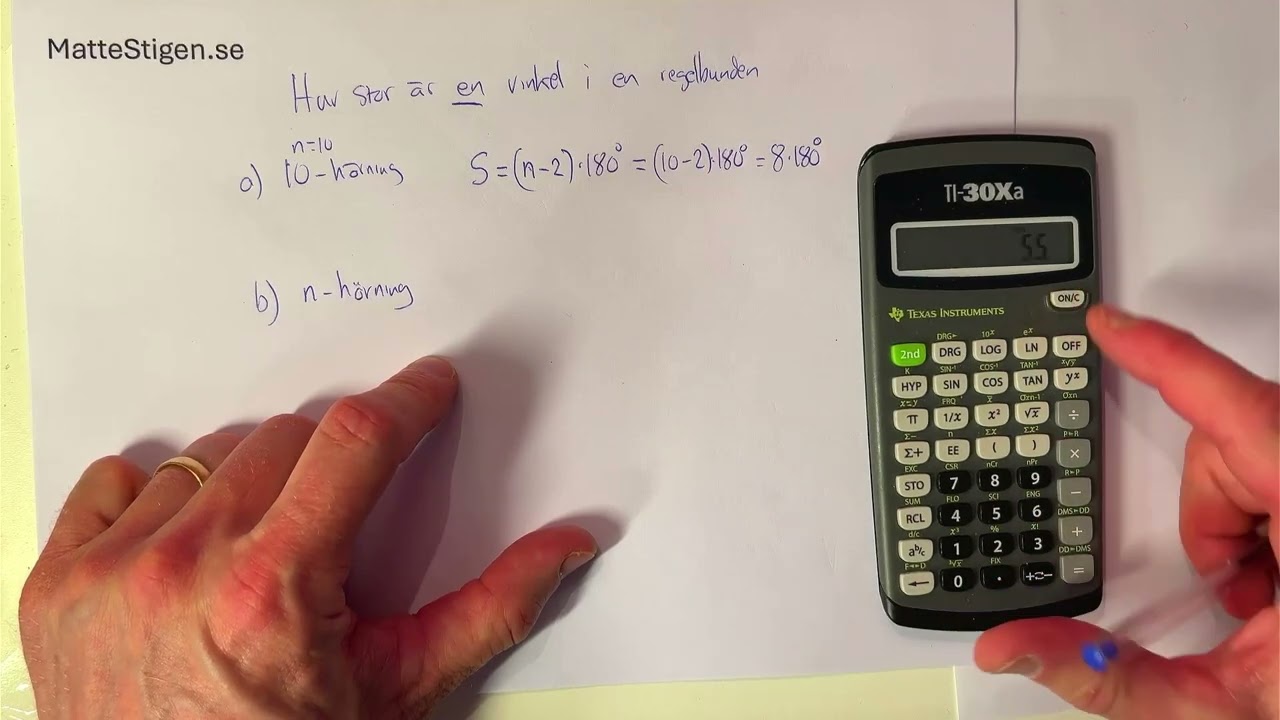 MatteStigen.se
Hur stor är en vinkel i en regelbunden
n=10
a) 10-hörning S=(n-2)·180° = (10-2)·180° = 8·180°
b) n-hörning
TI-30Xa
55
TEXAS INSTRUMENTS
ON/C
DRG► 10ˣ eˣ
2nd DRG LOG LN OFF
K SIN⁻¹ COS⁻¹ TAN⁻¹ ˣ√y
HYP SIN COS TAN yˣ
x⇄y FRQ x̄ σxn-1 σxn
π 1/x x² √x ÷
Σ- n Σx Σx² P►R
Σ+ EE ( ) ×
EXC CSR nCr nPr R►P
STO 7 8 9 −
SUM FLO SCI ENG DMS►DD
RCL 4 5 6 +
d/c x³ % x! DD►DMS
a b/c 1 2 3 =
F◄►D ³√x FIX
← 0 . +⇄−